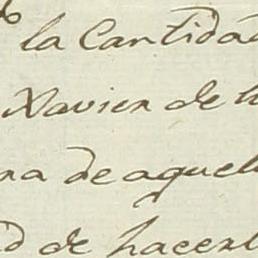 la Cantidad
Xavier de
na de aquel
d de hacerl